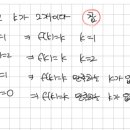 k가 2개이다 참
⇒ f(k)=k k=1
⇒ f(k)=k k=2
=1 ⇒ f(k)=k 만족하는 k가 없
=0 ⇒ f(k)=k 만족하는 k가